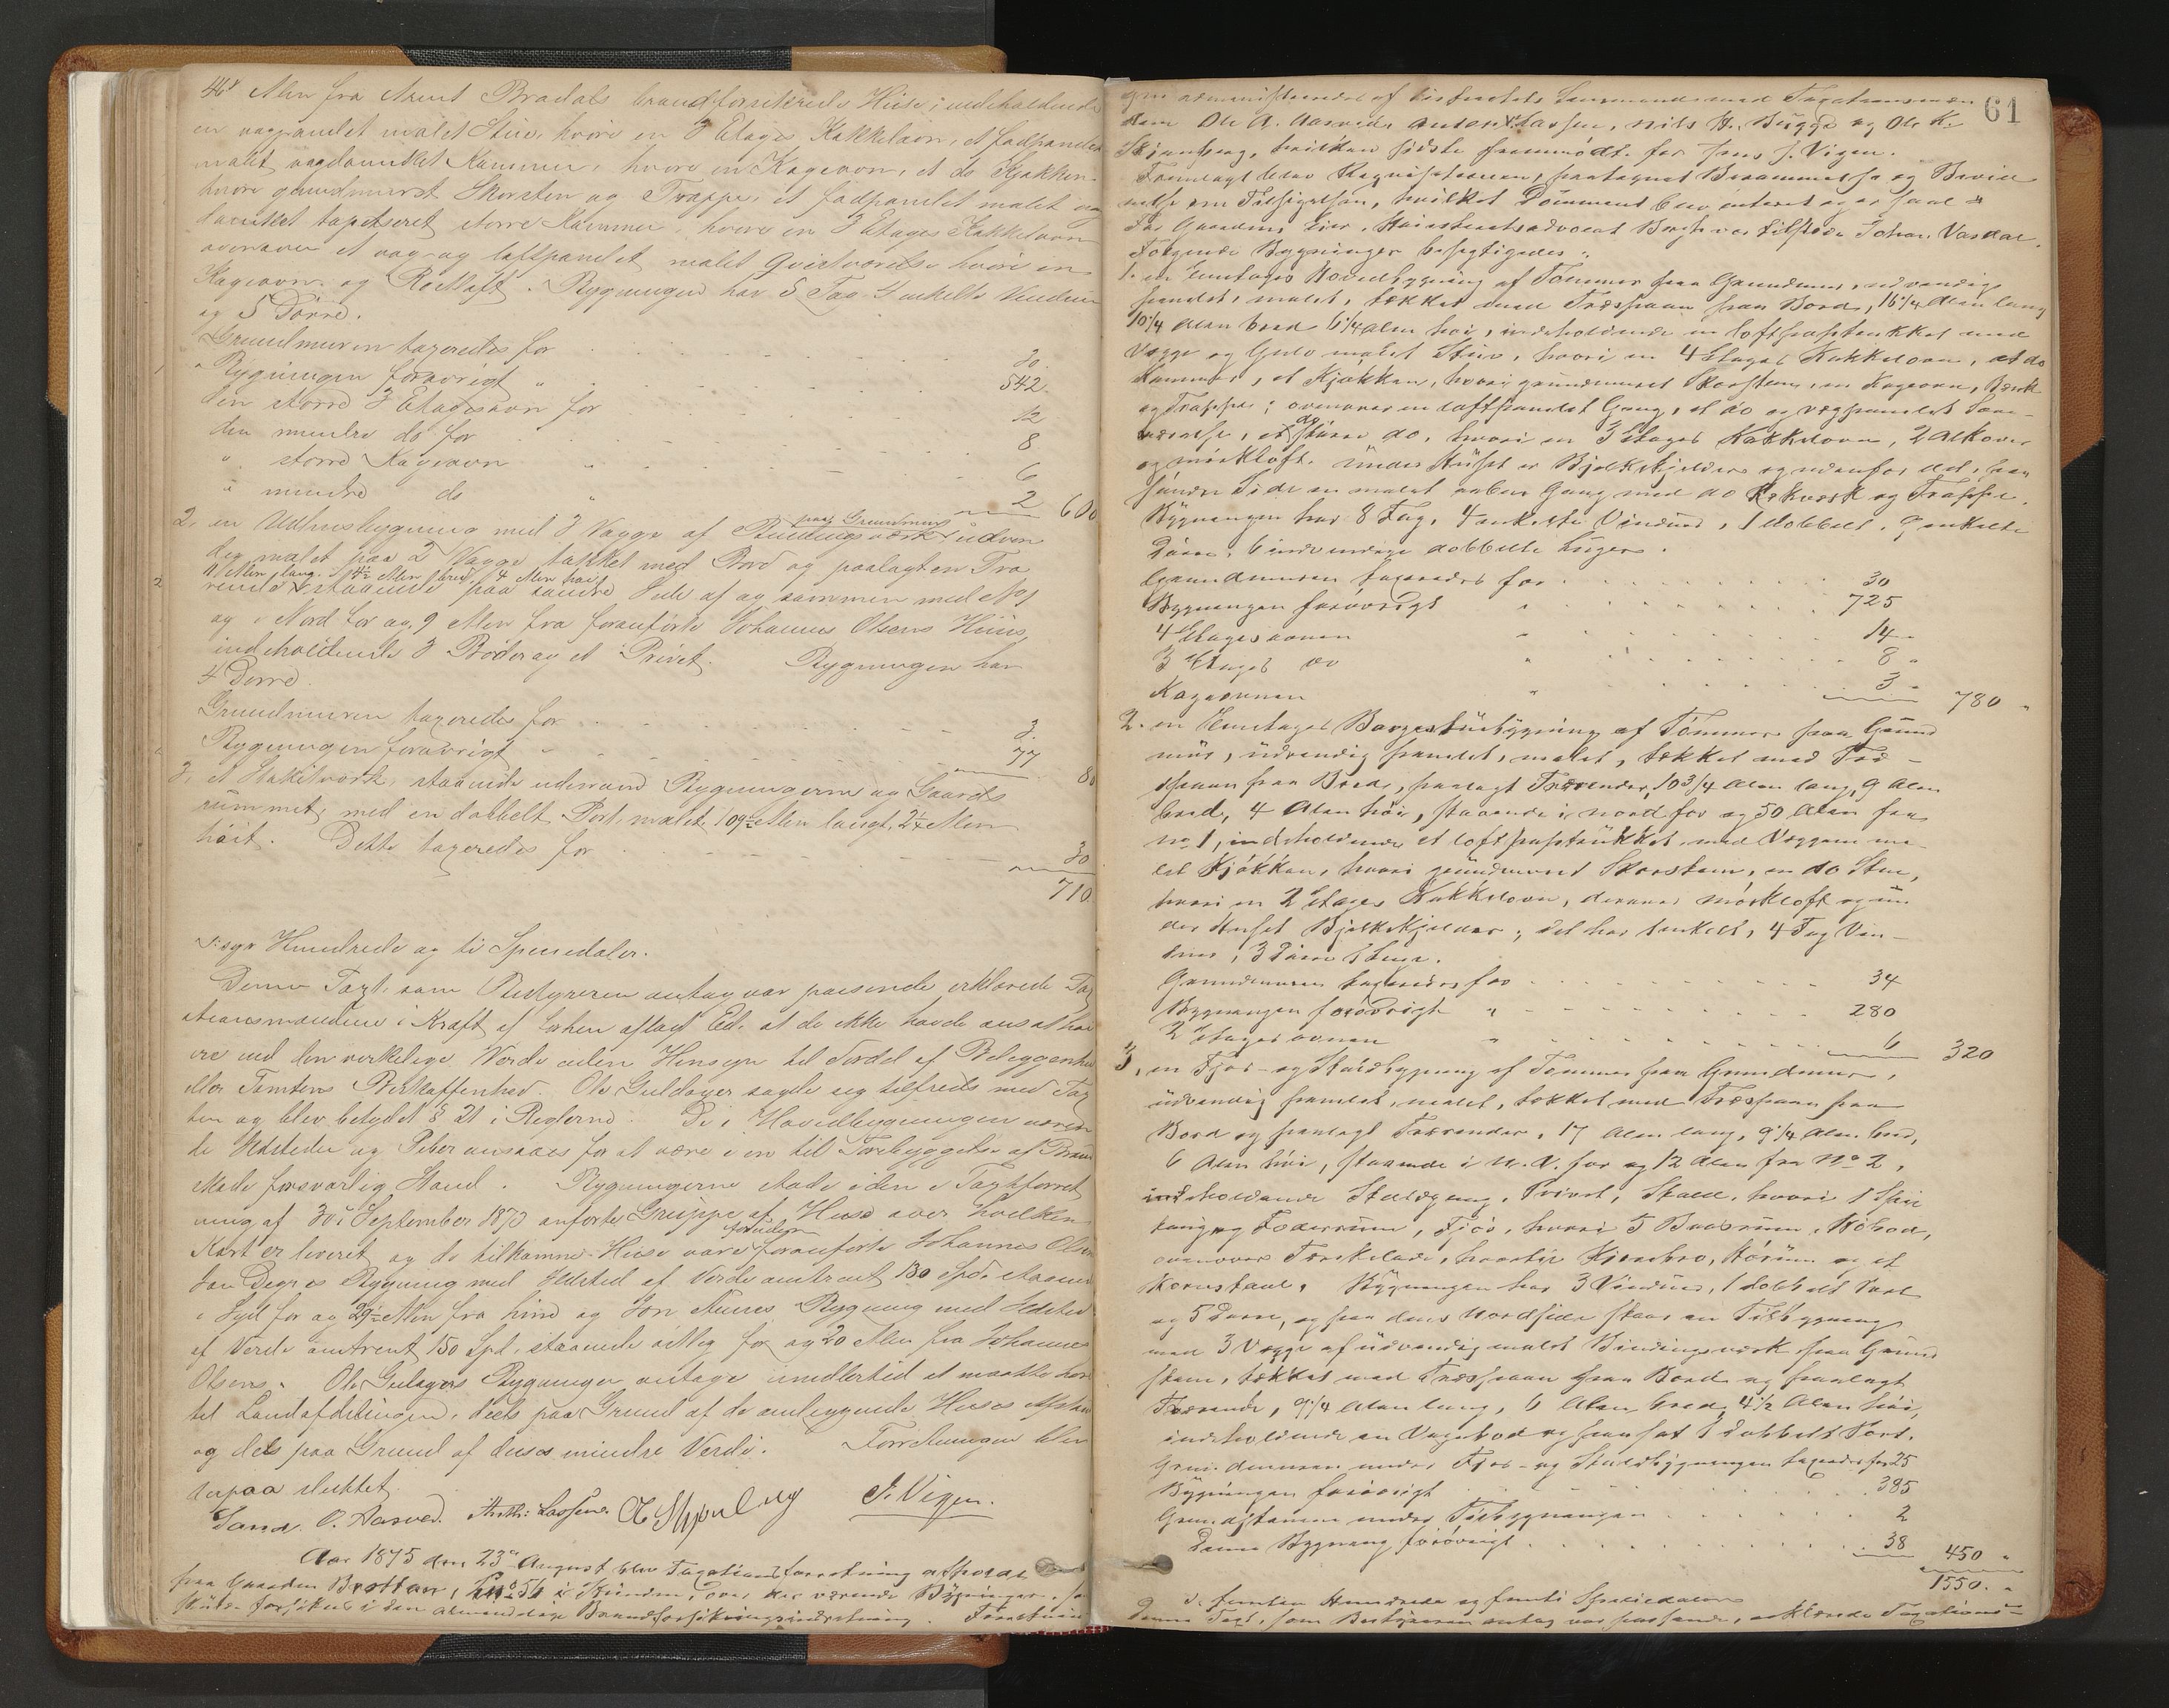 46 Alen fra Arnt Bradals brandforsikrede Huse; indeholdende
en vægpanelet malet Stue, hvori en 3 Etages Kakkelovn, et fadpanelet
malet Kammer, hvori en Kageovn, et do Kjøkken
hvori grundmuret Skorsten og Trappe, et fadpanelet malet og
tapetseret større Kammer, hvori en 3 Etages Kakkelovn
ovenover et væg- og loftspanelet malet Qvistværelse hvori en
Kageovn og Rotloft. Bygningen har 5 Fag 4 enkelte Vinduer
og 5 Dørre.
Grundmuren taxeredes for 30.
Bygningen forøvrigt " 542.
den større 3 Etagesovn for 12
den mindre do for 8
" større Kageovn " 6
" mindre do " 2 600
2. en Udhusbygning med 3 Vægge af Bindingsværk paa Grundmur udven
dig malet paa 2 Vægge tækket med Bord og paalagten Træ
11 Alen lang 4½ Alen bred, 4 Alen høi
rende staaende paa søndre Side af og sammen med No 1
og i Nord for og 9 Alen fra foranførte Johannes Olsens Huus,
indeholdende 3 Boder og et Privet. Bygningen har
4 Dørre.
Grundmuren taxeredes for 3.
Bygningen forøvrigt " 77 80
3, et Stakitværk, staaende uderom Bygningerne og Gaards
rummet, med en dobbelt Port, malet, 109½ Alen langt, 2¼ Alen
høit. Dette taxeredes for 30
710.
syv Hundrede og ti Speciedaler.
Denne Taxt, som Bestyreren antog var passende erklærede Tax
ationsmændene i Kraft af aflagt Ed, at de ikke havde ansat høi
ere end den virkelige Værdi uden Hensyn til Fordel af Beliggenhed
eller Tomtens Beskaffenhed. Ole Guldager sagde sig tilfreds med Tax
ten og blev betydet § 21 i Reglerne. De i Hovedbygningen værende
de Ildsteder og Piber ansaaes for at være i en til Forebyggelse af Brand
skade forsvarlig Stand. Bygningerne stode i den i Taxtforret
ning af 30te September 1873 anførte Gruppe af Huse over hvilken
Kart er leveret, og de tilkomne Huse vare foruden foranførte Johannes Olsen
Jon Degnes Bygning med Ildsted af Værdi omtrent 130 Spd. staaende
i Syd for og 29½ Alen fra hine og Jon Bygning med Ildsted
af Værdi omtrent 150 Spd, staaende østlig for og 20 Alen fra Johannes
Olsens. Ole Guldagers Bygninger antages imidlertid at maatte høre
til Landafdelingen, deels paa Grund af de omliggende Huses Afstand
og dels paa Grund af disses mindre Værdi. Forretningen blev
derpaa sluttet.
O. Aasved. Anth: Lassen. J. Vigen.
Aar 1875 den 23de August blev Taxationsforretning afholdt
paa Gaarden Brottan, i Skonden, over der værende Bygninger, som
skulde forsikres i den almindelige Brandforsikringsindretning. Forretnin
61
gen administreredes af Distriktets Lensmand med Taxationsmæn
dene Ole A. Aasved, Anton Lassen, Nils H. Bugge og Ole K.
Stjernberg, hvilken sidste fremmødte for Jens J. Vigen.
Fremlagt blev Requisitionen, paategnet Berammelse og Bevid
nelse om Tilsigelsen, hvilket Document blev interet og er saal
For Gaardens Eier, Høiesteretsadvocat Bergh var tilstede Johan Vardal.
Følgende Bygninger besigtigedes:
1. en Eenetages Hovedbygning af Tømmer paa Grundmur, udvendig
panelet, malet, tækket med Træspaan paa Bord, 16¼ Alen lang
10¼ Alen bred 6¼ Alen høi, indeholdende en loftpaptrukket med
Vægge og Gulv malet Stue, hvori en 4 Etages Kakkelovn, et do
Kammer, et Kjøkken, hvori grundmuret Skorsteen, en Kageovn, Bænk
og Trappe; ovenover en loftspanelet Gang, et do og vægpanelet Sove-
værelse, et do større do, hvori en 3 Etages Kakkelovn, 2 Alkover
og mørkloft. Under Huset er Bjelkekjelder og udenfor det, paa
søndre Side en malet aaben Gang med do Rækværk og Trappe.
Bygningen har 8 Fag, 4 enkelte Vinduer, 1 dobbelt, 9 enkelte
Dørre, 6 indvendige dobbelte Luger.
Grundmuren taxeredes for 30
Bygningen forøvrigt " 725
4 Etagesovnen " 14 "
3 Etages do " 8 "
Kageovnen " 3 " 780 "
2. en Eenetages Borgestuebygning af Tømmer paa Grund
muur, udvendig panelet, malet, tækket med Træ-
spaan paa Bord, paalagt Trærender, 10¾ Alen lang, 9 Alen
bred, 4 Alen høi, staaende i Nord for og 50 Alen fra
No 1, indeholdende et loftpaptrukket, med Væggene ma
let Kjøkken, hvori grundmuret Skorsteen, en do Stue,
hvori en 2 Etages Kakkelovn, derover mørkloft og un
der Huset Bjelkekjelder; det har 4 enkelt, 4 Fag Vin-
duer, 3 Dørre 1 Luge.
Grundmuren taxeredes for 34
Bygningen forøvrigt " 280
2 Etagesovnen " 6 320
3, en Fjøs- og Staldbygning af Tømmer paa Grundmuur,
udvendig panelet, malet, tækket med Træspaan paa
Bord og paalagt Trærender, 17 Alen lang, 9¼ Alen bred,
6 Alen høi, staaende i N.V. for og 12 Alen fra No 2,
indeholdende Staldgang, Privet, Stald, hvori 1 Spil
taug og Foderrum, Fjøs, hvori 5 Baasrum, Høbod,
ovenover Trærkelade, hvortil Kjørebro, Hørum og et
Kornstaal. Bygningen har 3 Vinduer, 1 dobbelt Port
og 5 Dørre, og paa dens Nordside staar en Tilbygning
med 3 Vægge af udvendig malet Bindingsværk paa Grund
steen, tækket med Træspaan paa Bord og paalagt
Trærende, 9¼ Alen lang, 6 Alen bred, 4½ Alen høi,
indeholdende en Vognbod og paasat 1 dobbelt Port.
Grundmuren under Fjøs- og Staldbygningen taxeredes for 25
Bygningen forøvrigt 385
Grundstenene under Tilbygningen 2
Denne Bygning forøvrigt 38 450 "
1550. "
femten Hundrede og femti Speciedaler
Denne Taxt, som Bestyreren antog var passende, erklærede Taxations-